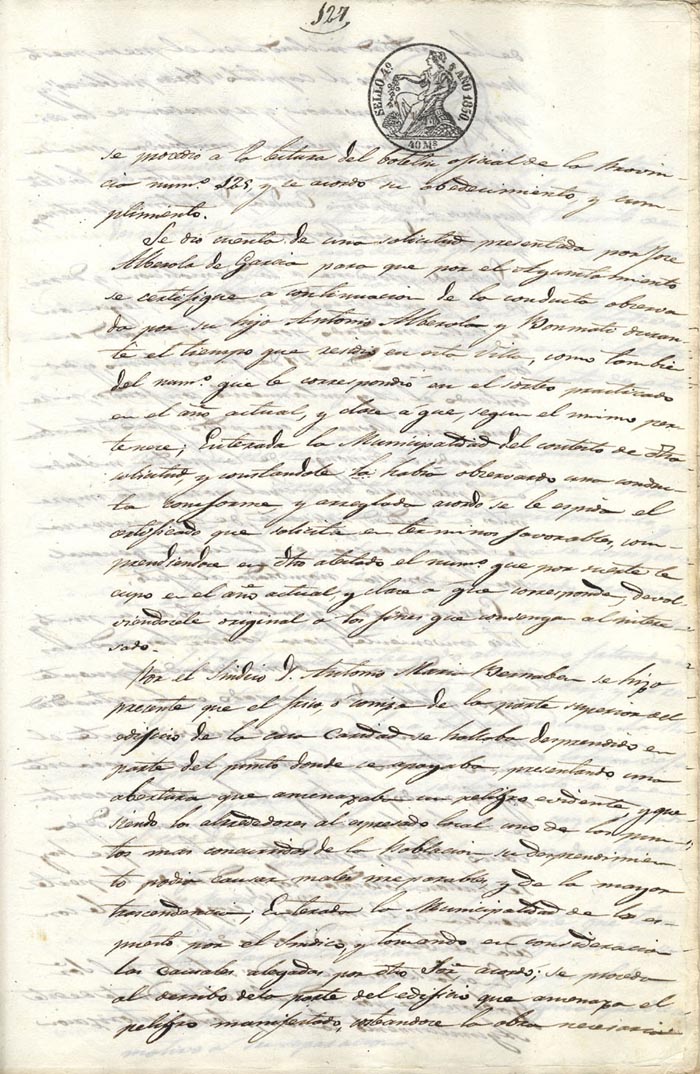 127
SELLO 4º AÑO 1850.
40 Ms
se procedio a la lectura del boletin oficial de la Provin-
cia num.º 125 y se acordó su obedecimiento, y cum-
plimiento.
Se dió cuenta de una solicitud presentada por Jose
Alberola de Garcia para que por el Ayuntamiento
se certifique a continuacion de la conducta observa
da por su hijo Antonio Alberola y Bonmati duran-
te el tiempo que residió en esta Villa, como tambien
del num.º que le correspondió en el sorteo practicado
en el año actual, y clase a que, segun el mismo per
tenece; Enterada la Municipalidad del contesto de dha
solicitud y constandole ha observado una conduc
ta conforme, y arreglada acordó se le espida el
certificado que solicita en terminos favorables, com-
prendiendose en dho atestado el num.º que por suerte le
cupo en el año actual, y clase a que corresponde, devol-
viendocele original a los fines que convenga al intere-
sado.
Por el Sindico D. Antonio Maria Bernabeu se hizo
presente que el friso, o cornisa de la parte superior del
edificio de la casa Caridad se hallaba desprendido en
parte del punto donde se apoyaba, presentando una
abertura que amenazaba un peligro evidente, y que
siendo los alrededores al espresado local uno de los pun-
tos mas concurridos de la Poblacion, su desprendimien
to podia causar males irreparables, y de la mayor
trascendencia; Enterada la Municipalidad de lo es-
puesto por el Sindico, y tomando en consideracion
las causales alegadas por dho Sor acordó; se proceda
al derribo de la parte del edificio que amenaza el
peligro manifestado, costeandose la obra necesaria